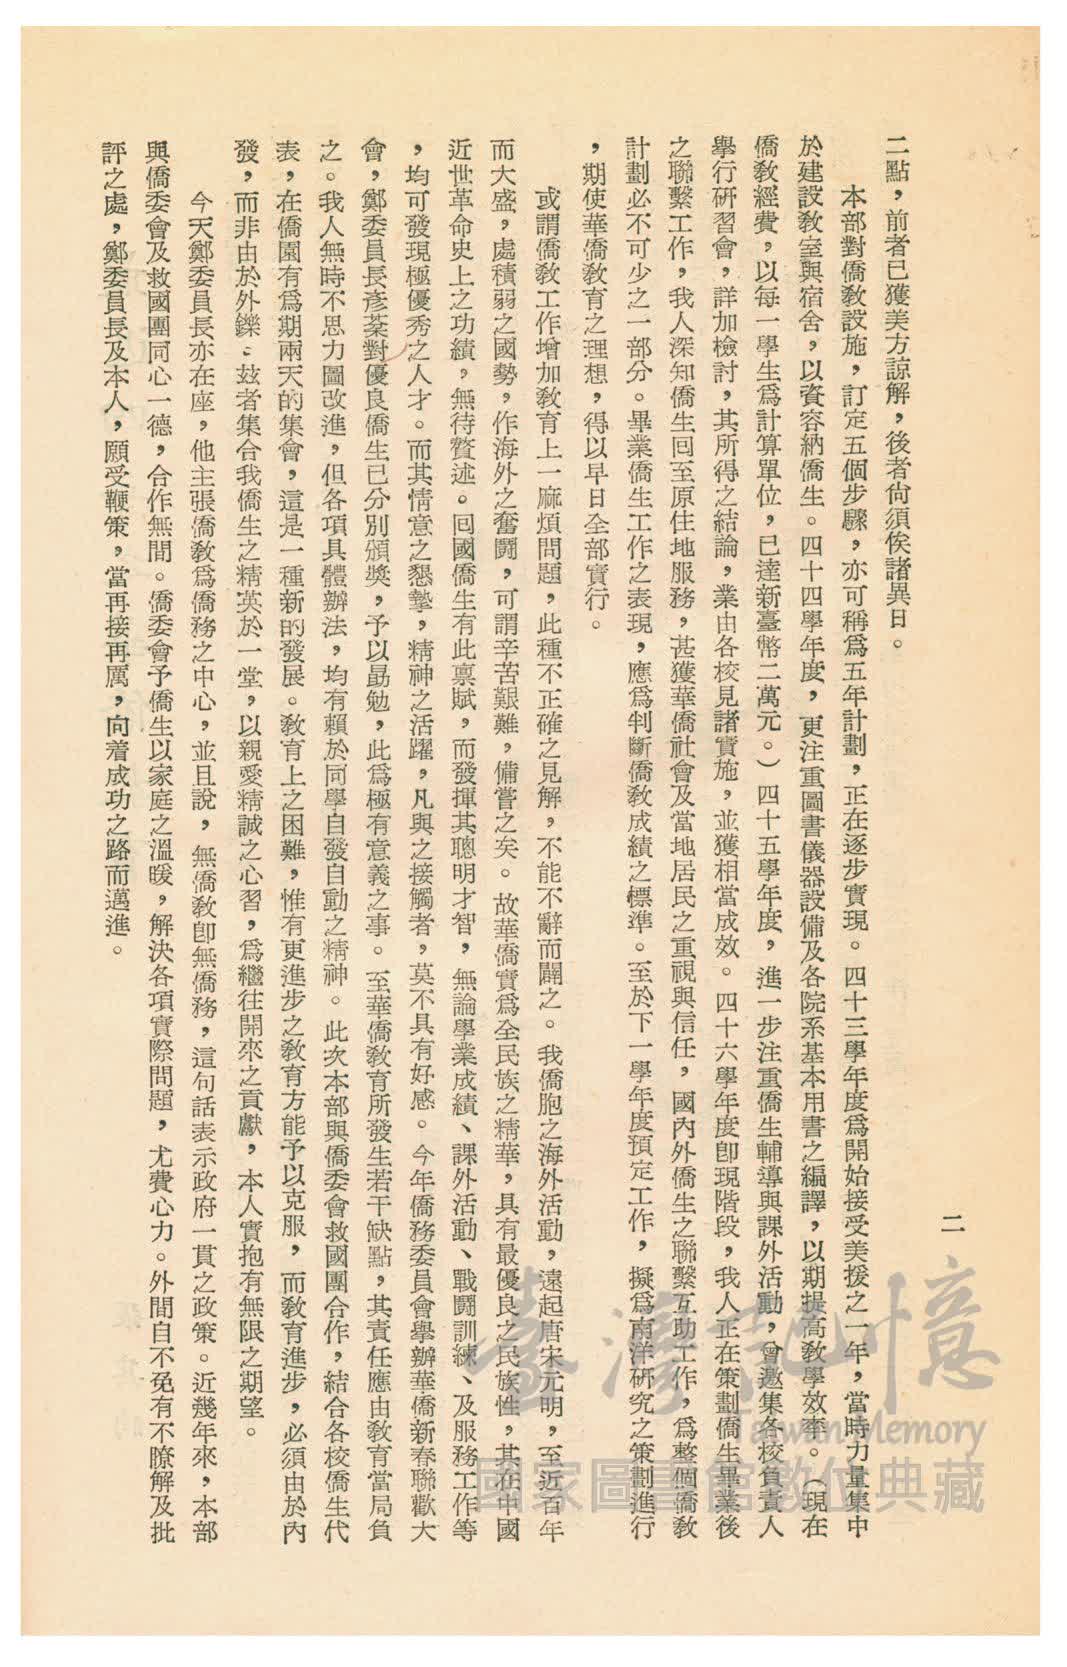 二
二點，前者已獲美方諒解，後者尙須俟諸異日。
本部對僑教設施，訂定五個步驟，亦可稱爲五年計劃，正在逐步實現。四十三學年度爲開始接受美援之一年，當時力量集中
於建設教室與宿舍，以資容納僑生。四十四學年度，更注重圖書儀器設備及各院系基本用書之編譯，以期提高教學效率。（現在
僑教經費，以每一學生爲計算單位，已達新臺幣二萬元。）四十五學年度，進一步注重僑生輔導與課外活動，曾邀集各校負責人
舉行研習會，詳加檢討，其所得之結論，業由各校見諸實施，並獲相當成效。四十六學年度卽現階段，我人正在策劃僑生畢業後
之聯繫工作，我人深知僑生囘至原住地服務，甚獲華僑社會及當地居民之重視與信任，國內外僑生之聯繫互助工作，爲整個僑教
計劃必不可少之一部分。畢業僑生工作之表現，應爲判斷僑教成績之標準。至於下一學年度預定工作，擬爲南洋研究之策劃進行
，期使華僑教育之理想，得以早日全部實行。
或謂僑教工作增加教育上一麻煩問題，此種不正確之見解，不能不辭而闢之。我僑胞之海外活動，遠起唐宋元明，至近百年
而大盛，處積弱之國勢，作海外之奮鬪，可謂辛苦艱難，備嘗之矣。故華僑實爲全民族之精華，具有最優良之民族性，其在中國
近世革命史上之功績，無待贅述。囘國僑生有此禀賦，而發揮其聰明才智，無論學業成績、課外活動、戰鬪訓練、及服務工作等
，均可發現極優秀之人才。而其情意之懇摯，精神之活躍，凡與之接觸者，莫不具有好感。今年僑務委員會舉辦華僑新春聯歡大
會，鄭委員長彥棻對優良僑生已分別頒獎，予以勗勉，此爲極有意義之事。至華僑教育所發生若干缺點，其責任應由教育當局負
之。我人無時不思力圖改進，但各項具體辦法，均有賴於同學自發自動之精神。此次本部與僑委會救國團合作，結合各校僑生代
表，在僑園有爲期兩天的集會，這是一種新的發展。教育上之困難，惟有更進步之教育方能予以克服，而教育進步，必須由於內
發，而非由於外鑠；玆者集合我僑生之精英於一堂，以親愛精誠之心習，爲繼往開來之貢獻，本人實抱有無限之期望。
今天鄭委員長亦在座，他主張僑教爲僑務之中心，並且說，無僑教卽無僑務，這句話表示政府一貫之政策。近幾年來，本部
與僑委會及救國團同心一德，合作無間。僑委會予僑生以家庭之溫暖，解決各項實際問題，尤費心力。外間自不免有不瞭解及批
評之處，鄭委員長及本人，願受鞭策，當再接再厲，向着成功之路而邁進。
臺灣記憶
Taiwan Memory
國家圖書館數位典藏